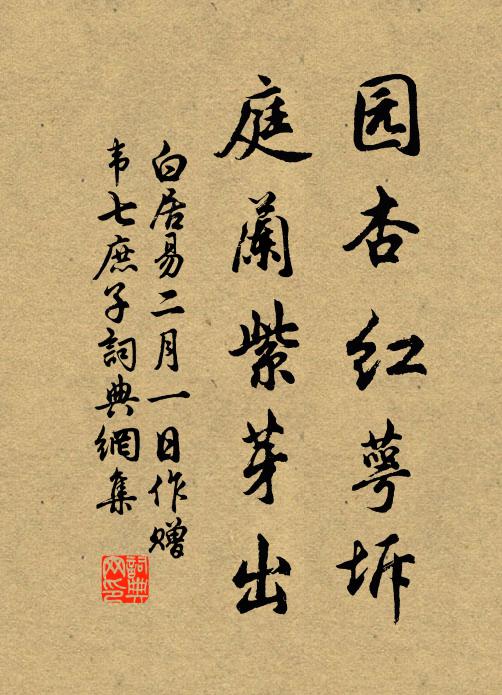 园杏红萼坼
庭蘭紫芽出
白居易二月一日作赠
韦七庶子詞典網集
詞典网印